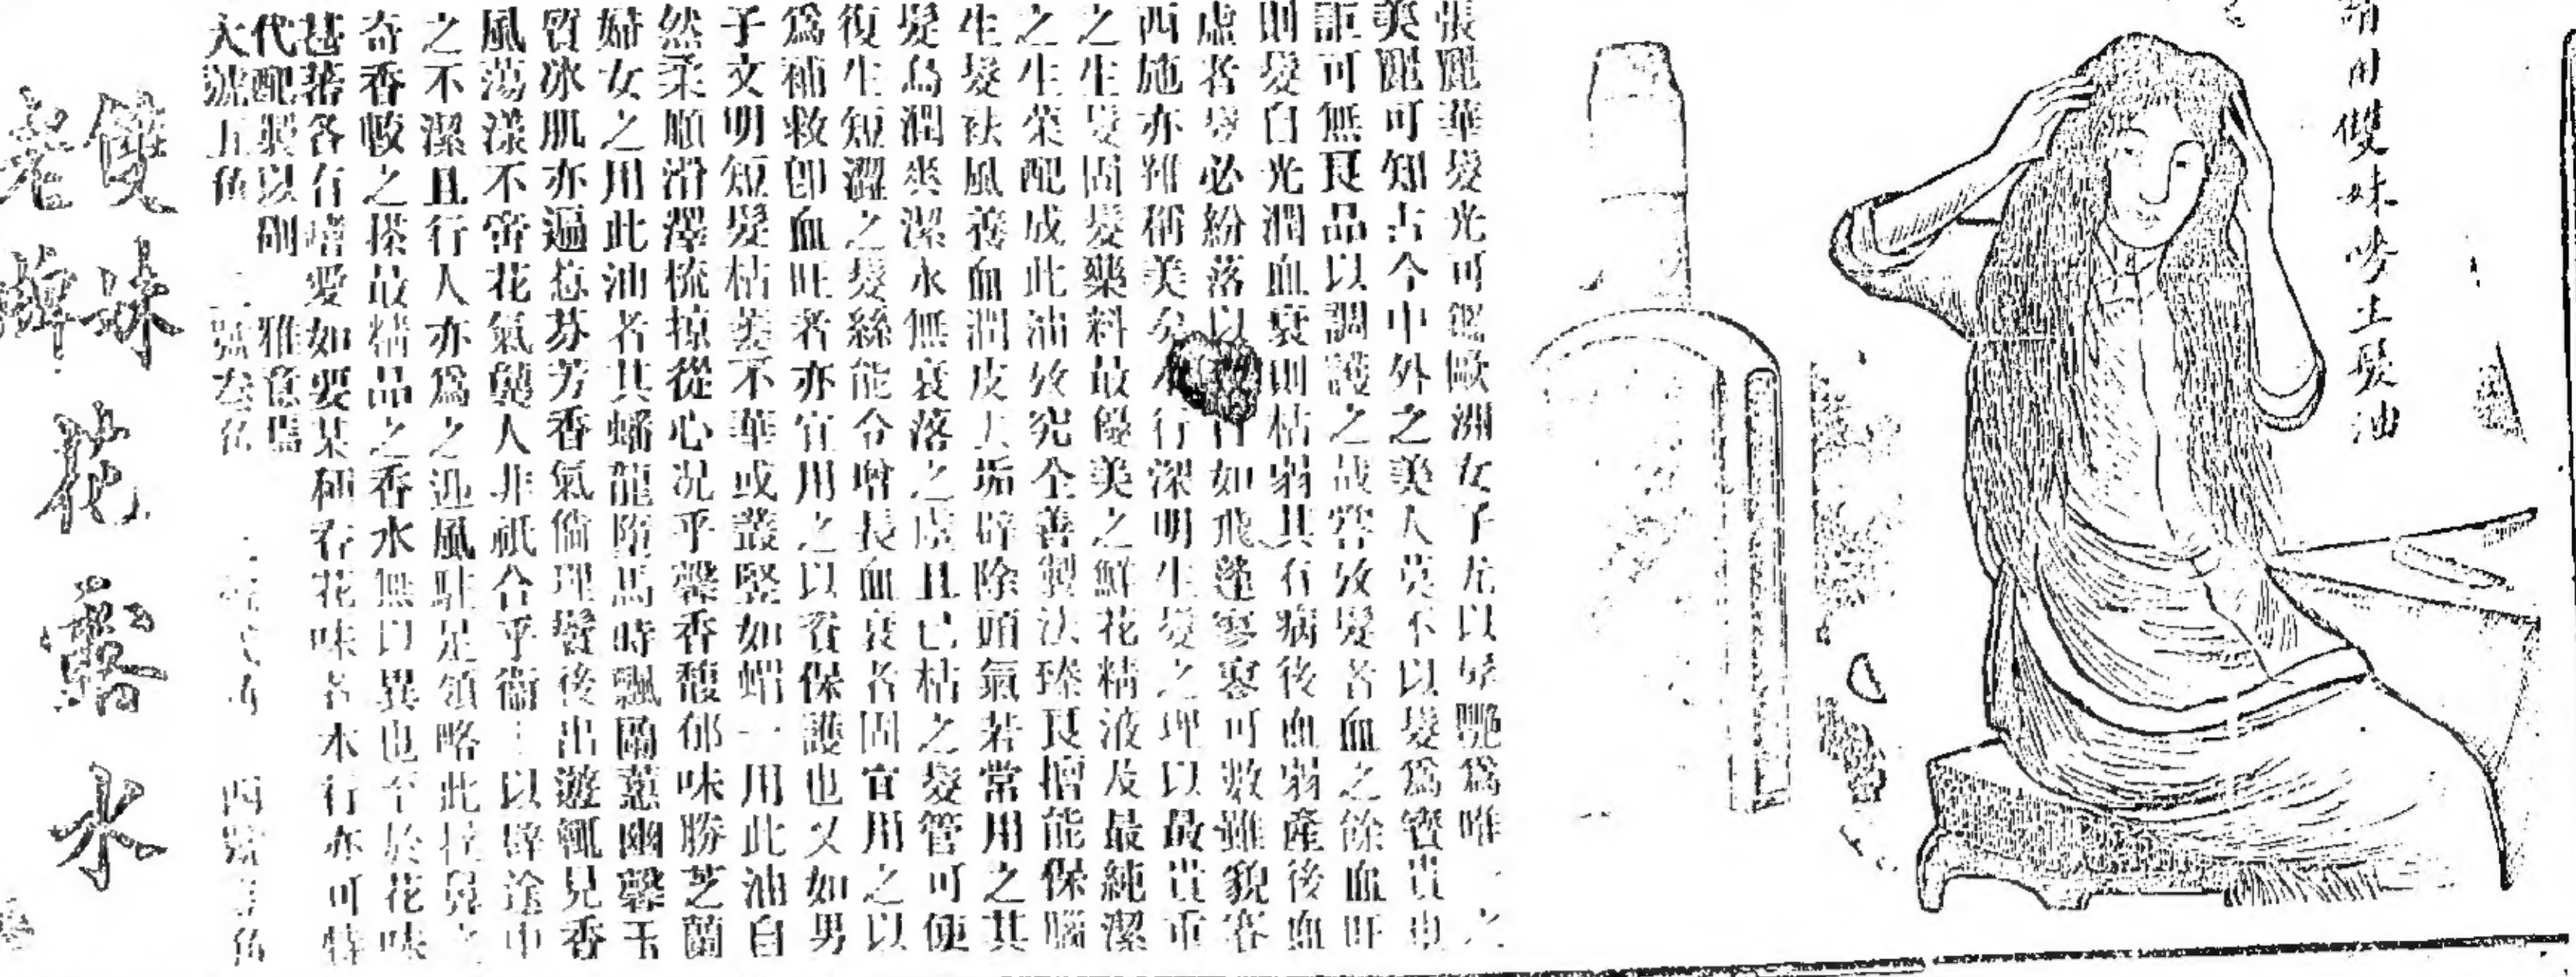 請用雙妹嘜生髮油
張麗華髮光可鑑歐洲女子尤以髮艷為唯一之
美麗可知古今中外之美人莫不以髮為寶貴也
詎可無良品以調護之哉窃攷髮者血之餘血旺
則髮自光潤血衰則枯弱其有病後血弱產後血
虛者髮必紛落以 如飛蓬寥寥可數雖貌若
西施亦難稱美矣本行深明生髮之理以最貴重
之生髮固髮藥料最優美之鮮花精液及最純潔
之生榮配成此油攷究全善製法臻良擅能保腦
生髮祛風養血潤皮去垢辟除頭氣若常用之其
髮烏潤爽潔永無衰落之虞且已枯之髮管可使
復生短澀之髮絲能令增長血衰者固宜用之以
為補救卽血旺者亦宜用之以資保護也又如男
子文明短髮枯萎不華或叢竪如蝟一用此油自
然柔順滑澤梳掠從心况乎馨香馥郁味勝芝蘭
婦女之用此油者其蟠龍墮馬時飄蘭蕙幽馨玉
質冰肌亦遍惹芬芳香氣倘理鬢後出遊輒見香
風蕩漾不啻花氣襲人非祇合乎衞生以辟途中
之不潔且行人亦為之迎風駐足領略此拉鼻之
奇香較之搽最精品之香水無以異也至於花味
甚蕃各有嗜愛如要某種香花味者本行亦可特
代配製以副 雅意焉
大號五角 二號叁角 四號
雙妹
老牌
花露水